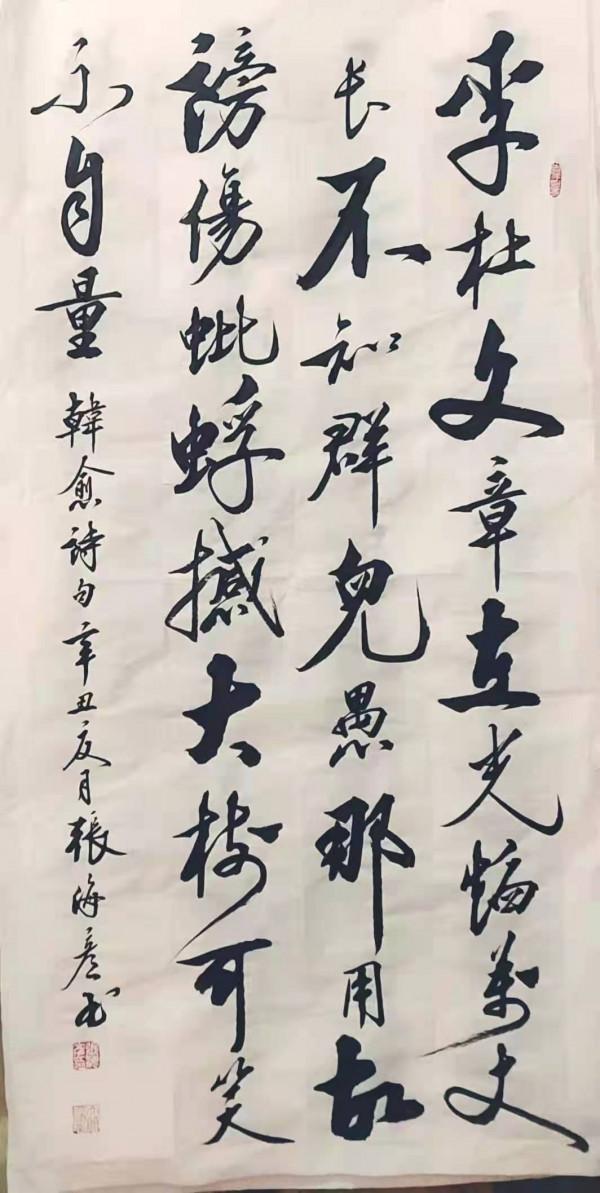 李杜文章在光焰萬丈
长不知群兒愚那用故
謗傷蚍蜉撼大樹可笑
不自量 韓愈詩句辛丑夏月張海彦书